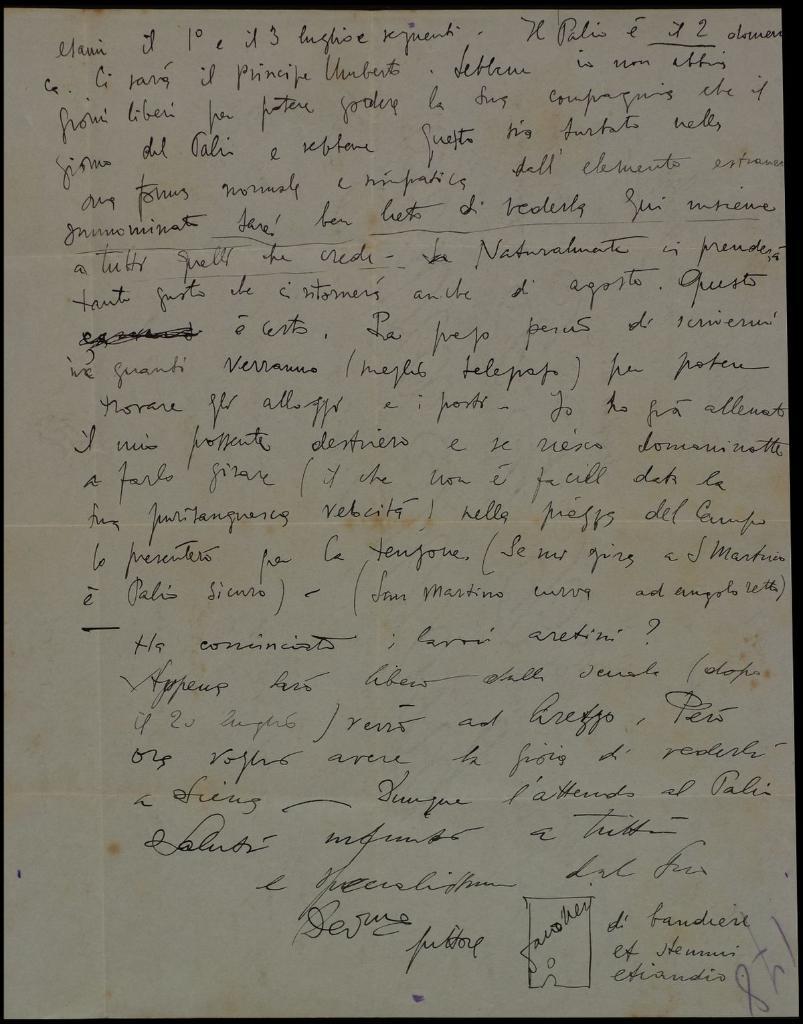 esami il 1° e il 3 luglio e seguenti. Il Palio è il 2 domeni
ca. Ci sarà il Principe Umberto. Sebbene io non abbia
giorni liberi per potere godere la Sua compagnia che il
giorno del Palio e sebbene questo sia turbato nella
sua forma normale e simpatica dall'elemento estraneo
innominato sarei ben lieto di vederla qui insieme
a tutti quelli che crede - Naturalmente ci prenderà
tanto gusto che ci ritornerà anche di agosto. Questo
è certo. La prego perciò di scrivermi
quanti verranno (meglio telegrafo) per potere
trovare gli alloggi e i posti - Io ho già allenato
il mio possente destriero e se riesco domaninotte
a farlo girare (il che non è facile data la
sua purisanguesca velocità) nella piazza del Campo
lo presenterò per la tenzone. (Se mi gira a S Martino
è Palio sicuro) - (San Martino curva ad angolo retto)
Ha cominciato i lavori aretini?
Appena sarò libero dalla scuola (dopo
il 20 luglio) verrò ad Arezzo. Però
ora voglio avere la gioia di vederla
a Siena - Dunque l'attendo al Palio
Saluti a tutti
e specialissimi dal Suo
pittore
di bandiere
et stemmi
etiandio